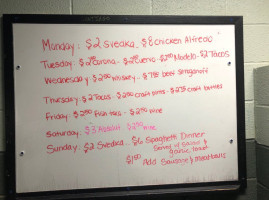 Monday: $2 Svedka - $8 Chicken Alfredo
Tuesday: $2 Corona - $2 Cuervo - $2.00 Modelo - $2 Tacos
Wednesday $2.00 Whiskey - $7.95 beef Stroganoff
Thursday: $2 Tacos - $2.00 Craft pints - $2.75 Craft bottles
Friday: $2.00 - $2.00 wine
Saturday: $3 Absolut $2.00 wine
Sunday: $2 Svedka... $6 Spaghetti Dinner
Served w/ Salad &
garlic toast
$1.00 Add Sausage & meatballs